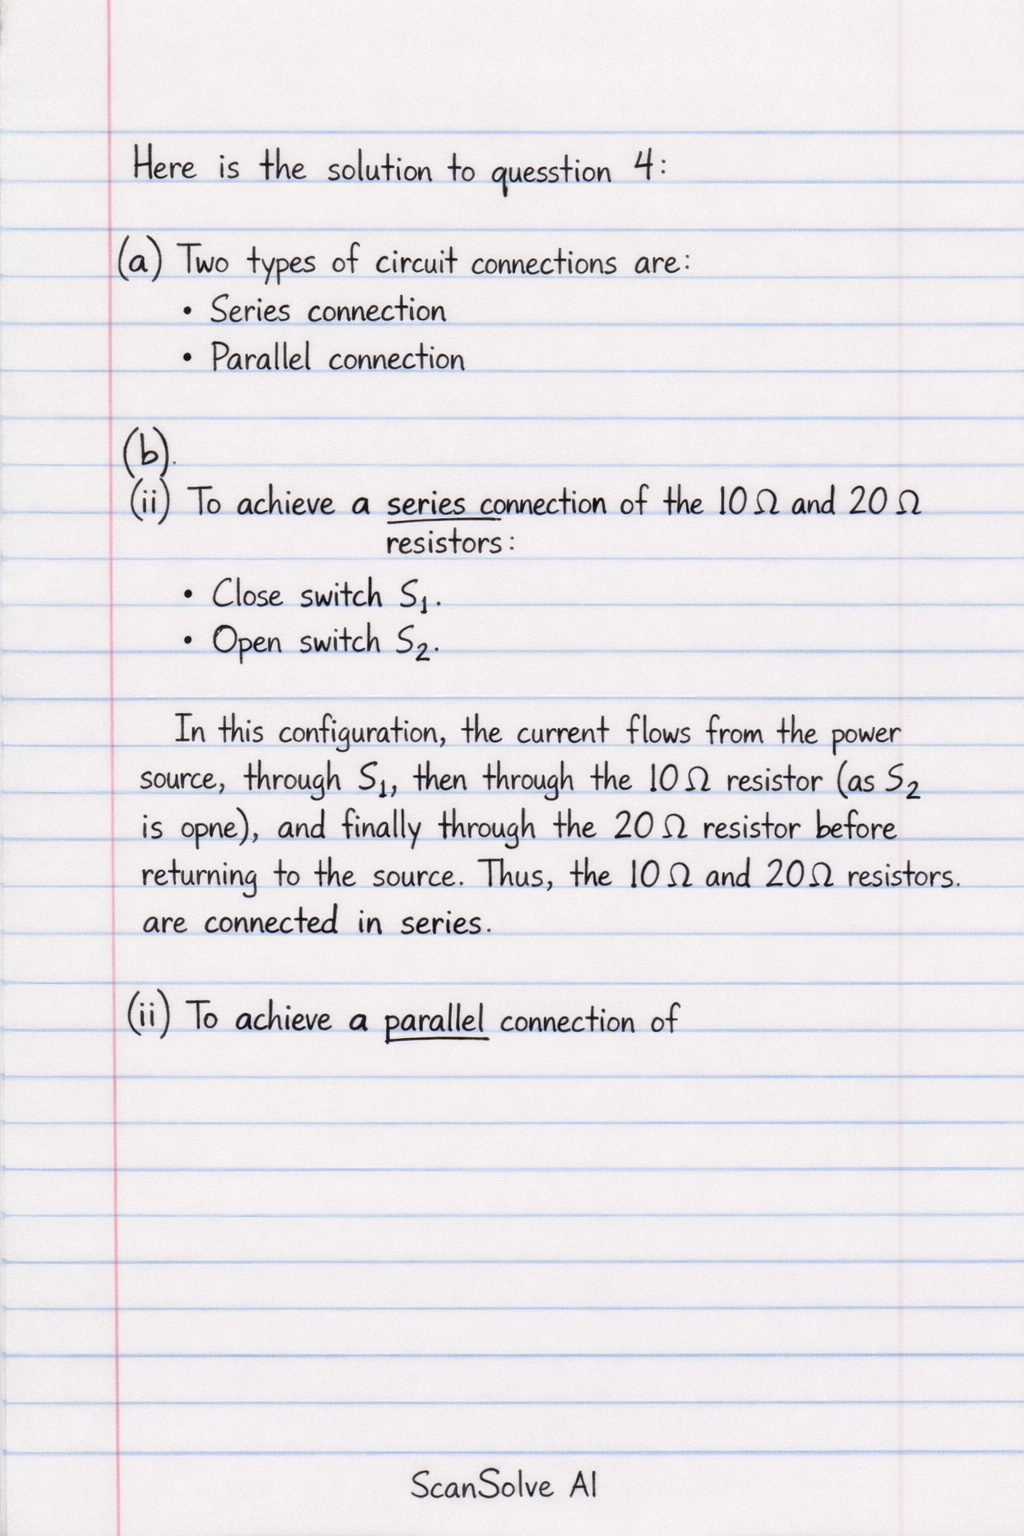 Here is the solution to quesstion 4:
(a) Two types of circuit connections are:
• Series connection
• Parallel connection
(b).
(ii) To achieve a series connection of the 10 Ω and 20 Ω
resistors:
• Close switch S₁.
• Open switch S₂.
In this configuration, the current flows from the power
source, through S₁, then through the 10 Ω resistor (as S₂
is opne), and finally through the 20 Ω resistor before
returning to the source. Thus, the 10 Ω and 20 Ω resistors.
are connected in series.
(ii) To achieve a parallel connection of
ScanSolve AI